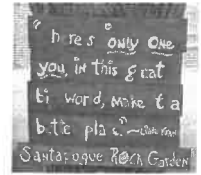 "heres only one
you, in this g eat
ti word, make t a
bette place."~
Santarogue Garden